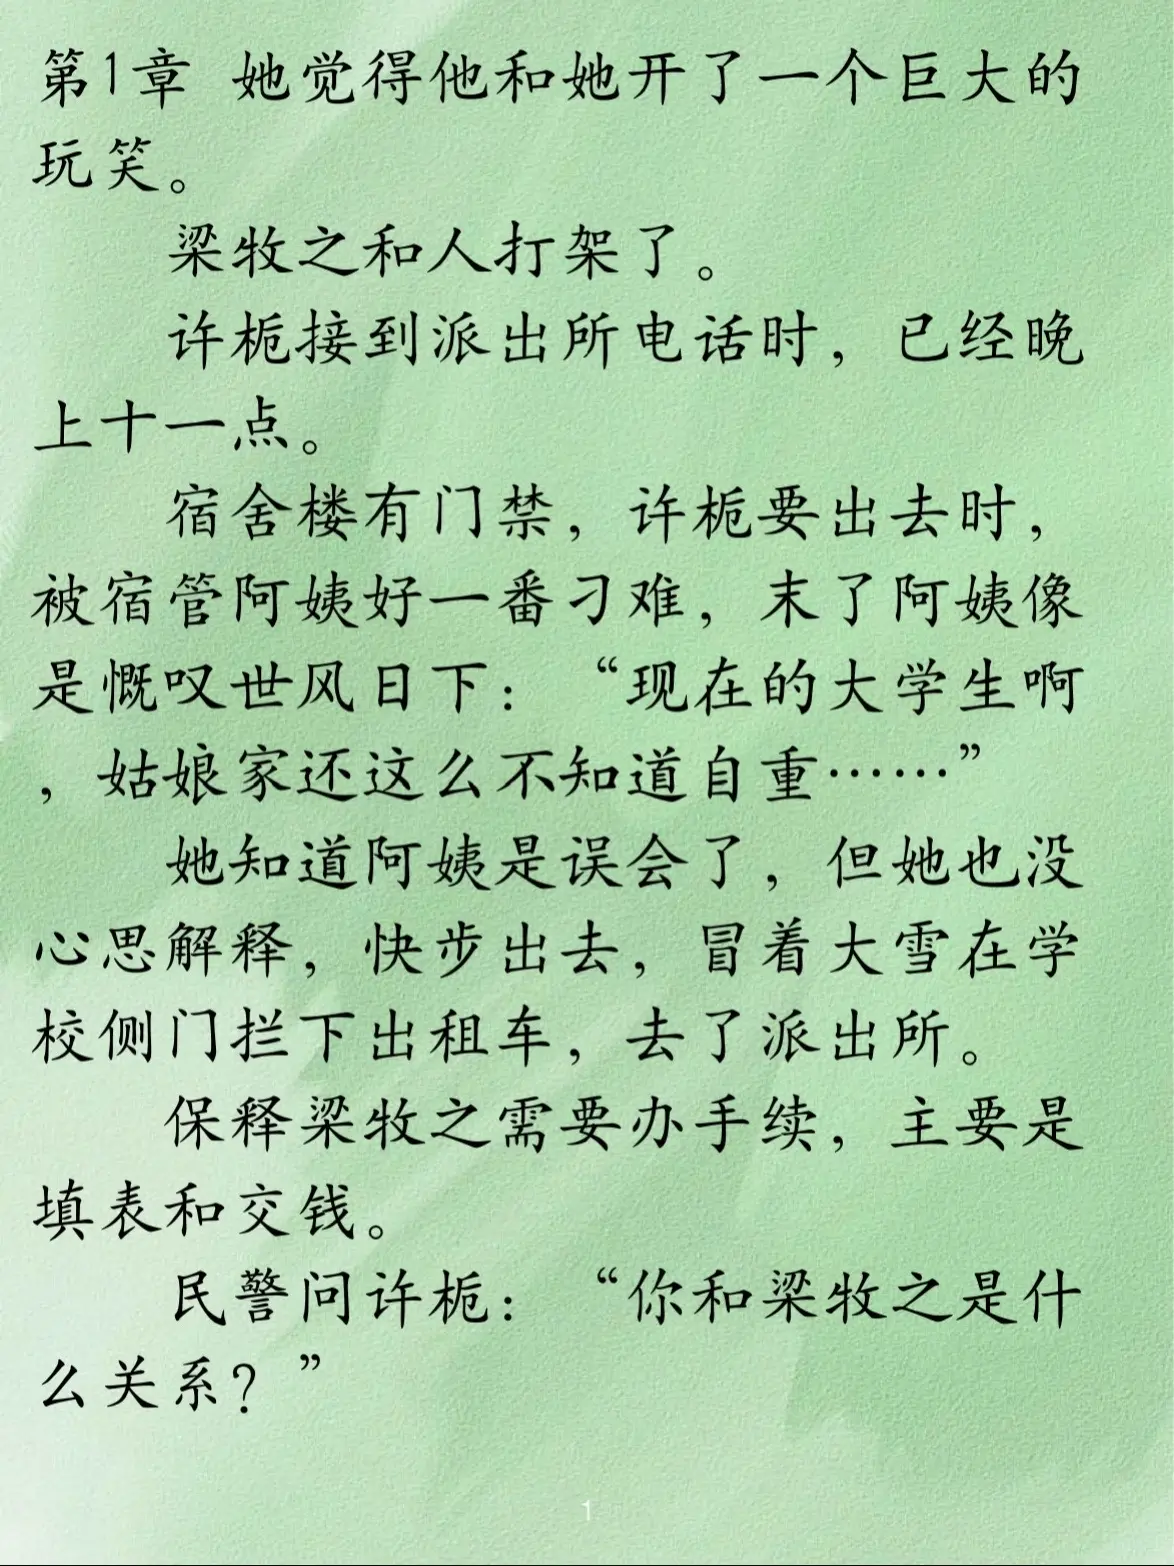 第1章 她觉得他和她开了一个巨大的
玩笑。
梁牧之和人打架了。
许栀接到派出所电话时，已经晚
上十一点。
宿舍楼有门禁，许栀要出去时，
被宿管阿姨好一番刁难，末了阿姨像
是慨叹世风日下：“现在的大学生啊
，姑娘家还这么不知道自重……”
她知道阿姨是误会了，但她也没
心思解释，快步出去，冒着大雪在学
校侧门拦下出租车，去了派出所。
保释梁牧之需要办手续，主要是
填表和交钱。
民警问许栀：“你和梁牧之是什
么关系？”
1